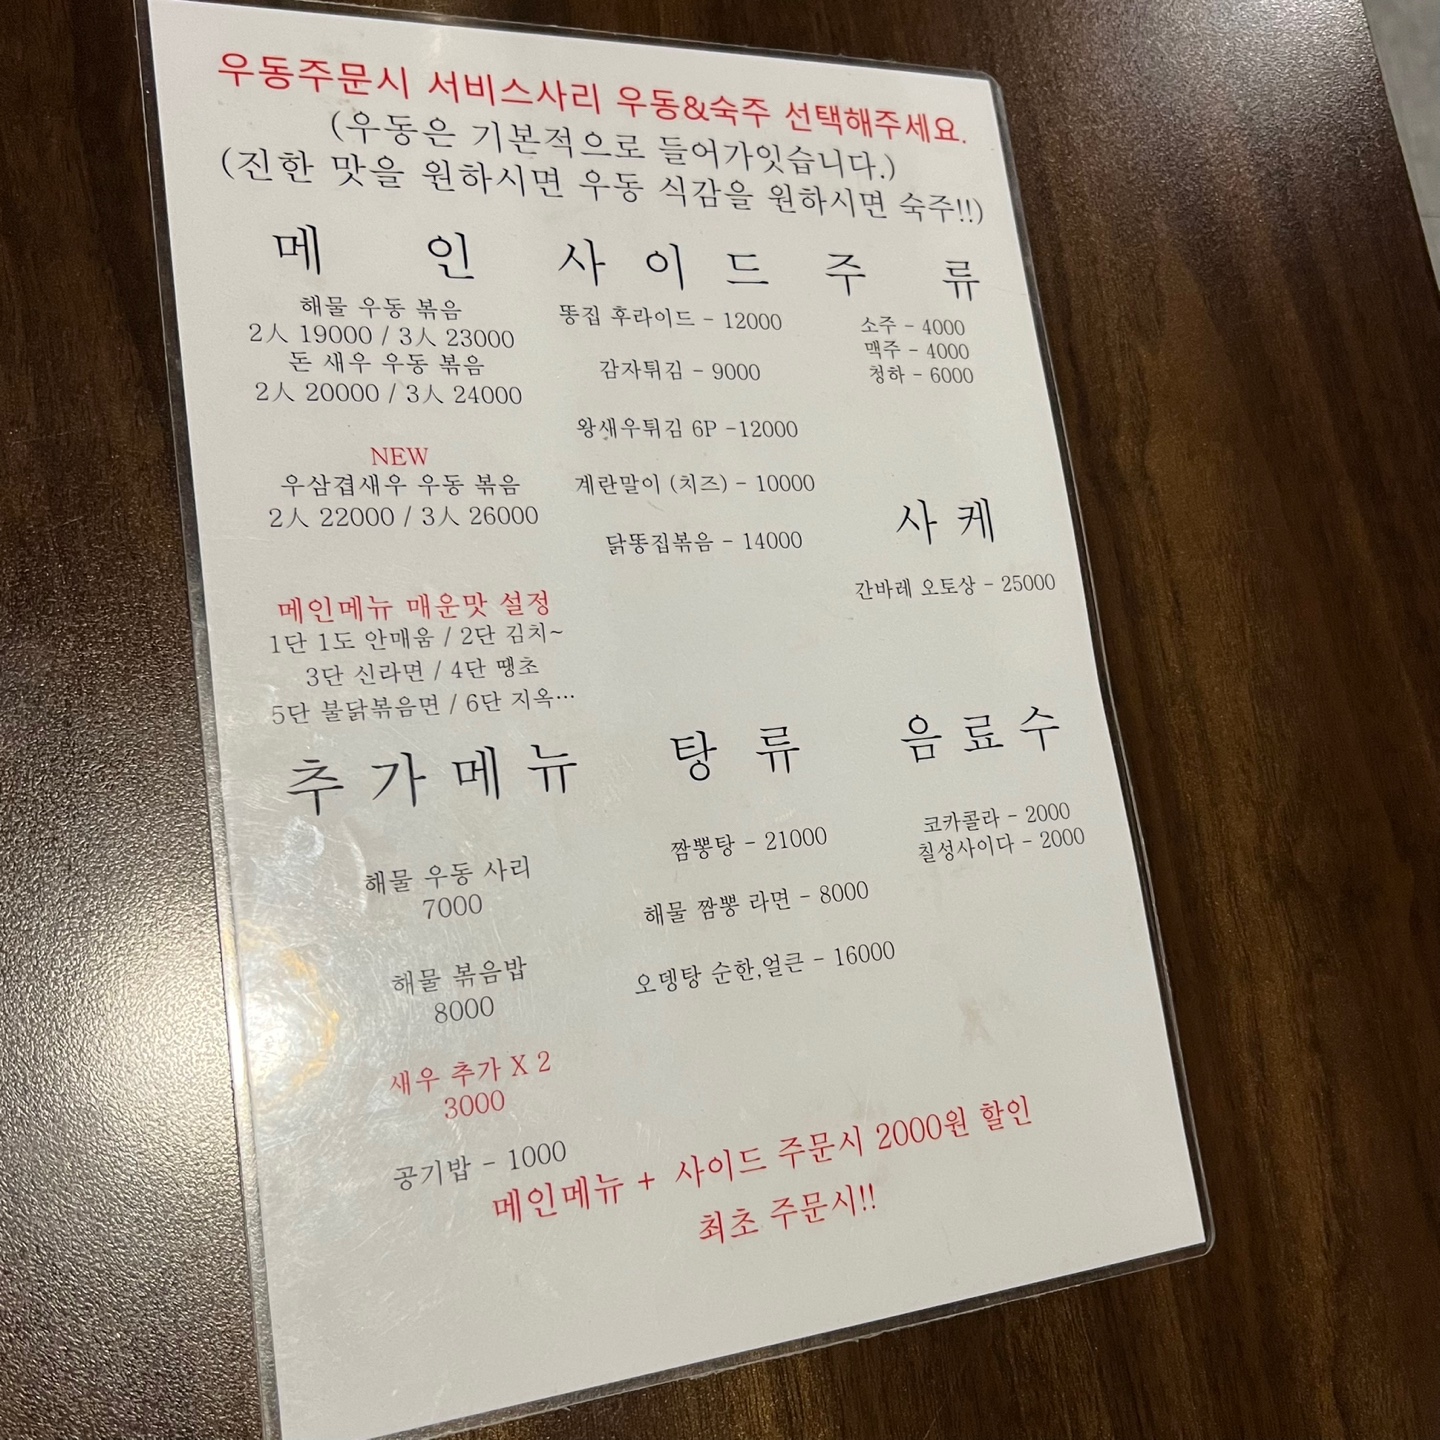 우동주문시 서비스사리 우동&숙주 선택해주세요.
(우동은 기본적으로 들어가잇습니다.)
(진한 맛을 원하시면 우동 식감을 원하시면 숙주!!)
메 인
해물 우동 볶음
2人 19000 / 3人 23000
돈 새우 우동 볶음
2人 20000 / 3人 24000
NEW
우삼겹새우 우동 볶음
2人 22000 / 3人 26000
메인메뉴 매운맛 설정
1단 1도 안매움 / 2단 김치~
3단 신라면 / 4단 땡초
5단 불닭볶음면 / 6단 지옥…
사 이 드
똥집 후라이드 - 12000
감자튀김 - 9000
왕새우튀김 6P -12000
계란말이 (치즈) - 10000
닭똥집볶음 - 14000
주 류
소주 - 4000
맥주 - 4000
청하 - 6000
사 케
간바레 오토상 - 25000
추 가 메 뉴
해물 우동 사리
7000
해물 볶음밥
8000
새우 추가 X 2
3000
공기밥 - 1000
탕 류
짬뽕탕 - 21000
해물 짬뽕 라면 - 8000
오뎅탕 순한,얼큰 - 16000
음 료 수
코카콜라 - 2000
칠성사이다 - 2000
메인메뉴 + 사이드 주문시 2000원 할인
최초 주문시!!